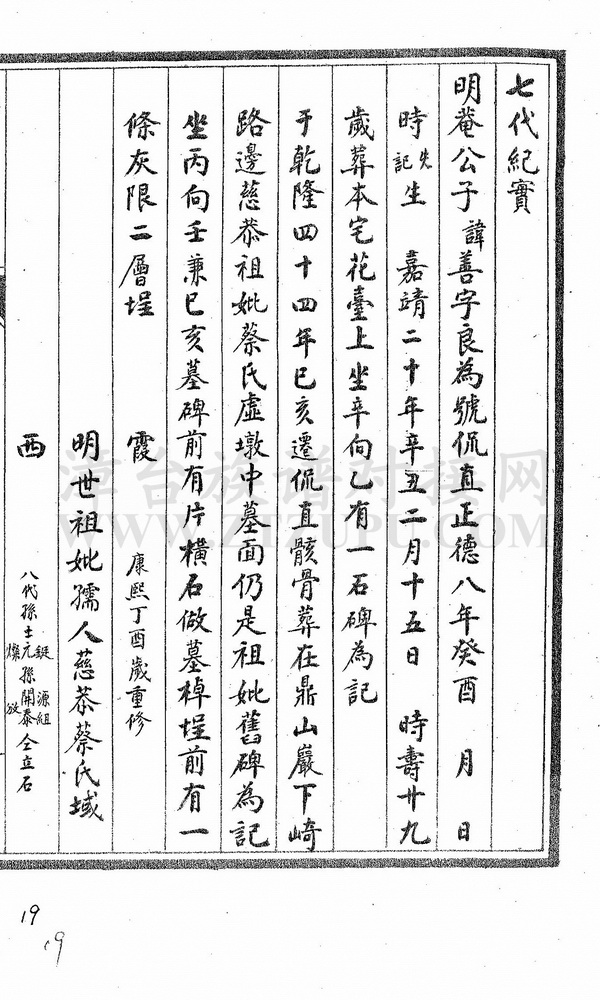 七代紀實
明菴公子諱善字良為號侃直正德八年癸酉 月 日
時失記生 嘉靖二十年辛丑二月十五日 時壽廿九
歲葬本宅花臺上坐辛向乙有一石碑為記
于乾隆四十四年已亥遷侃直骸骨葬在鼎山巖下崎
路邊慈恭祖妣蔡氏虛墩中墓面仍是祖妣舊碑為記
坐丙向壬兼巳亥墓碑前有片橫石做墓棹埕前有一
條灰限二層埕 霞 康熙丁酉歲重修
明世祖妣孺人慈恭蔡氏域
西 八代孫士元鋌燦孫開泰源組放仝立石
漳台族谱对接网
WWW.ZTZUPU.COM
19
19